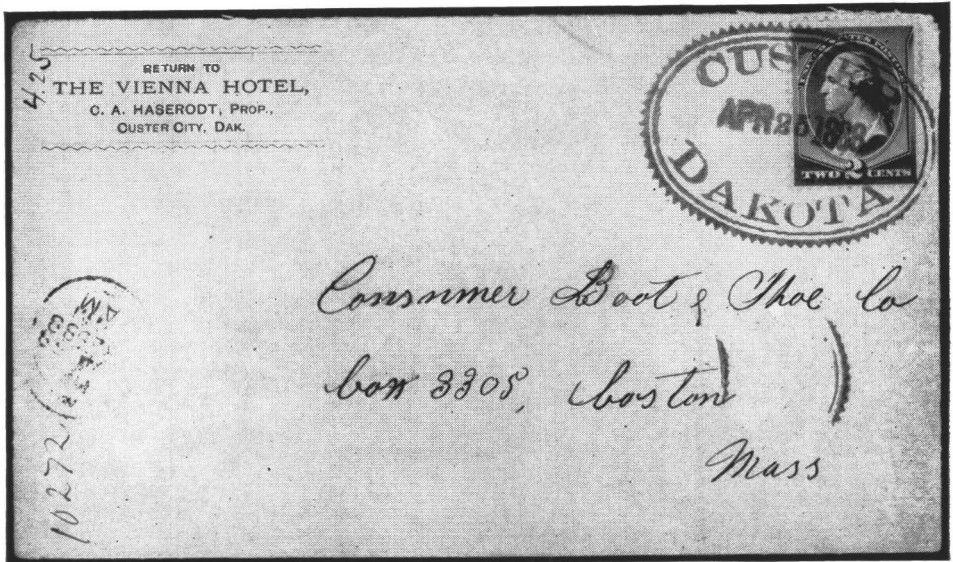 4.25
RETURN TO
THE VIENNA HOTEL,
C. A. HASERODT, PROP.,
CUSTER CITY, DAK.
CUST
APR 25 1888
DAKOTA
TWO 2 CENTS
Consumer Boot & Shoe Co
box 3305, boston
Mass
10272